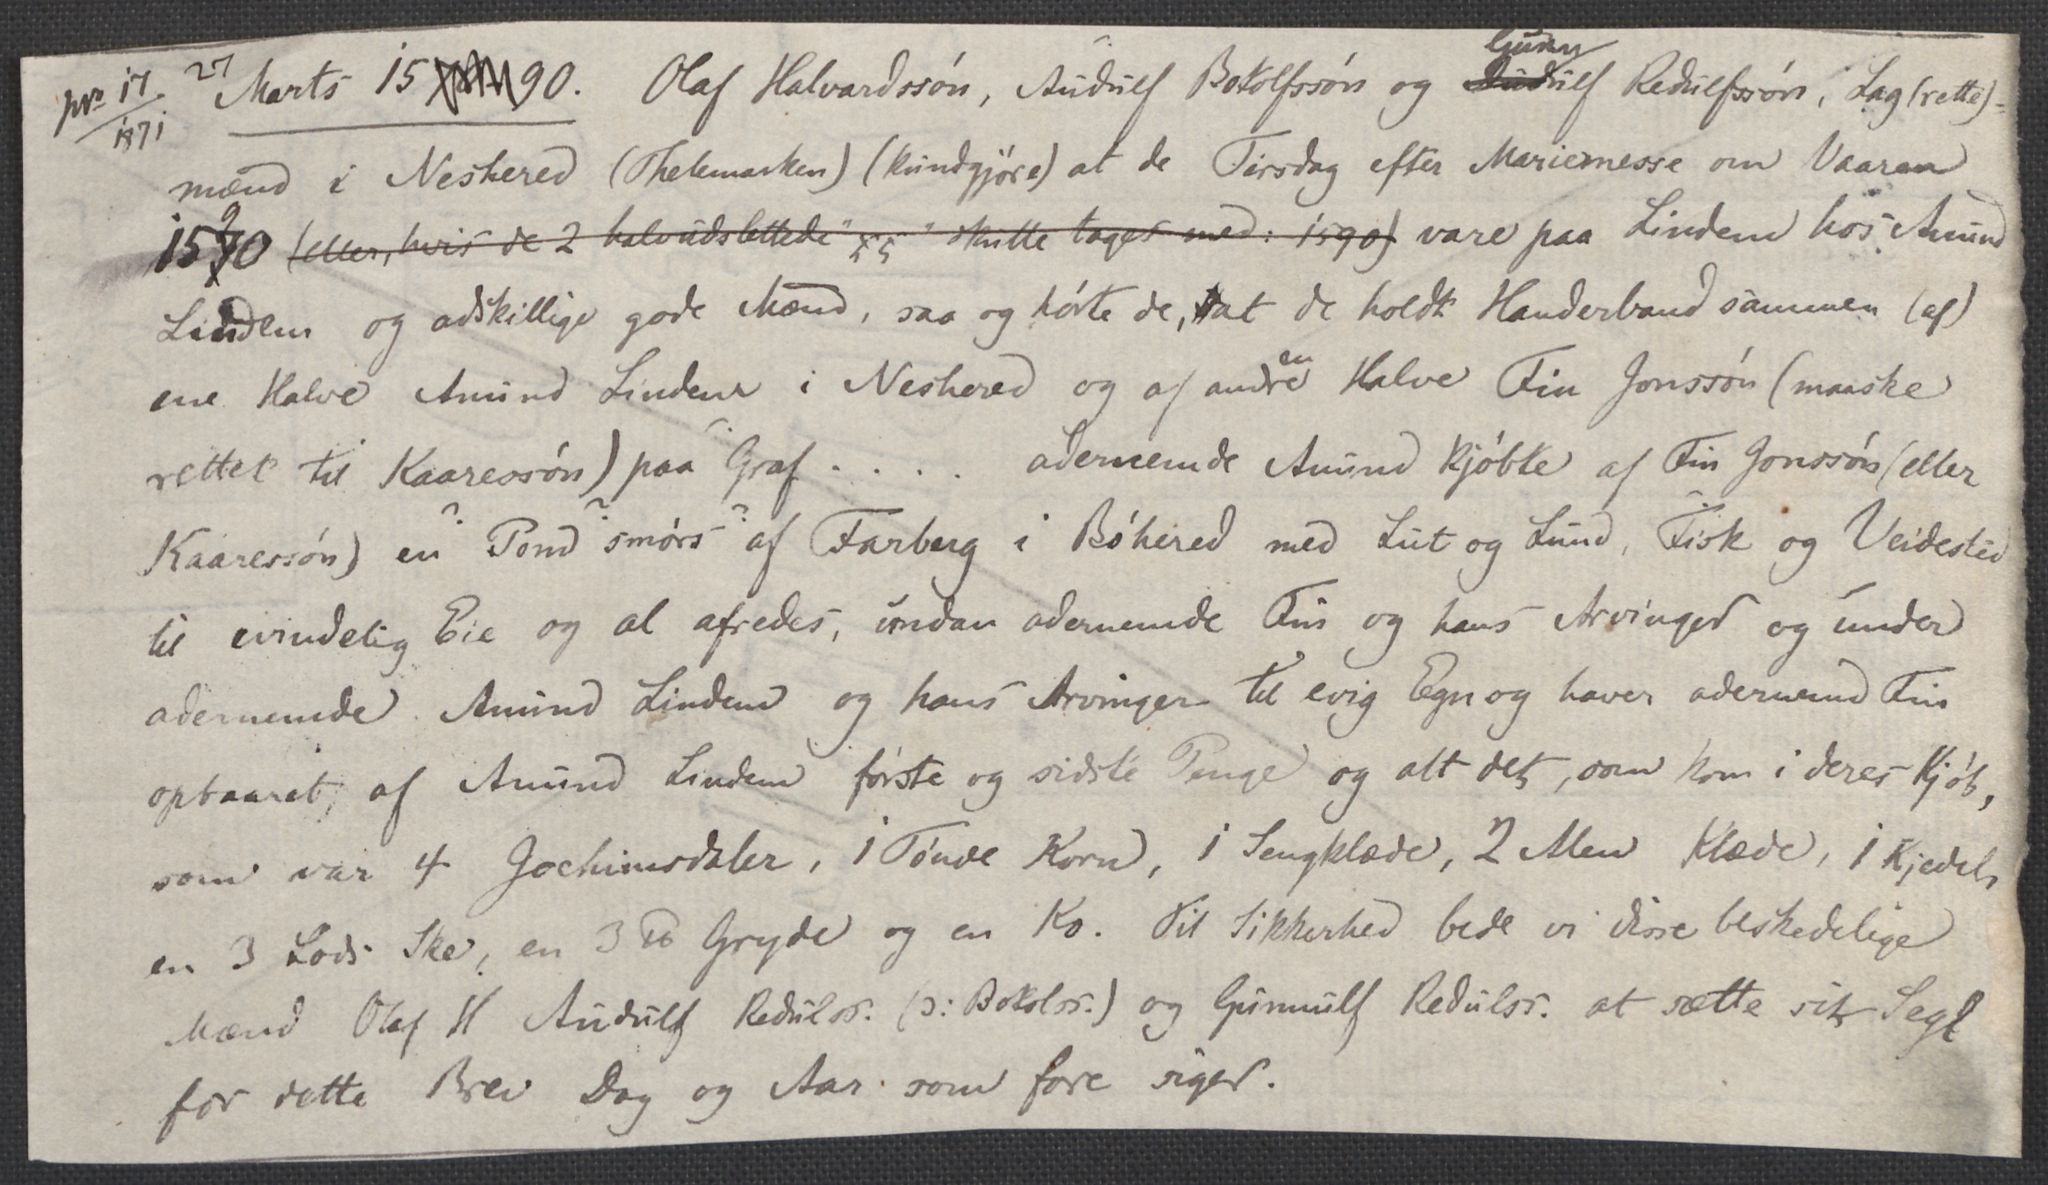 pr 17/1871 27 Marts 1590. Olaf Halvardssön, Audulf Bokolfssön og Gunulf Redulfssön, Lag(rette)-
mænd i Neshered (Thelemarken) (kundgjöre) at de Tirsdag efter Mariemesse om Vaaren
1590 (eller, hvis de 2 halvudslettede "xx" skulle tages med: 1590) vare paa Lindem hos Amund
Lindem og adskillige gode Mænd, saa og hörte de, at de holdt Handerband sammen (af)
ene Halve Amund Lindem i Neshered og af andre en Halve Fin Jonssön (maaske
rettet til Kaaressön) paa Graf . . . . adernemde Amund kjöbte af Fin Jonssön (eller
Kaaressön) en ? Pond ? smörs ? af Farberg i Böhered med Lut og Lund, Fisk og Veidested
til evindelig Eie og al afredes, undan adernemde Fin og hans Arvinger og under
adernemde Amund Lindem og hans Arvinger til evig Egn og haver adernemd Fin
opbaaret af Amund Lindem förste og sidste Penge og alt det, som kom i deres Kjöb,
som var 4 Jochimsdaler, 1 Tönde Korn, 1 Sengklæde, 2 Alen Klæde, 1 Kjedel,
en 3 Lods Ske, en 3 ℔ Gryde og en Ko. Til Sikkerhed bede vi disse beskedelige
Mænd Olaf H Audulf Redulss. (ɔ: Bokolss.) og Gunnulf Redulss. at sætte sit Segl
for dette Brev Dag og Aar som fore siger.